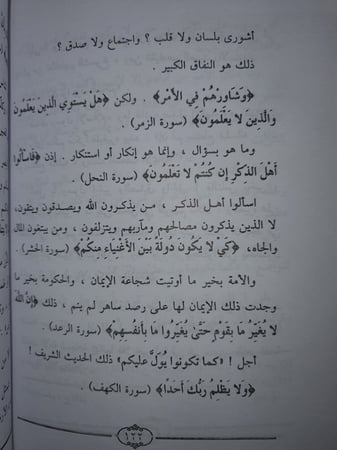 أشورى بلسان ولا قلب ؟ واجتماع ولا صدق ؟
ذلك هو النفاق الكبير .
﴿وَشَاوِرْهُمْ فِي الأَمْرِ﴾ . ولكن ﴿هَلْ يَسْتَوِي الَّذِينَ يَعْلَمُونَ
وَالَّذِينَ لا يَعْلَمُونَ﴾ (سورة الزمر) .
وما هو بسؤال ، وإنما هو إنكار أو استنكار . إذن ﴿فَاسْأَلُوا
أَهْلَ الذِّكْرِ إِن كُنتُمْ لا تَعْلَمُونَ﴾ (سورة النحل) .
اسألوا أهل الذكر ، مـن يذكـرون الله ويصدقون ويتقون،
لا الذين يذكرون مصالحهم ومآربهم ويتزلفون ، ومن يبتغون المال
والجاه، ﴿كَيْ لا يَكُونَ دُولَةً بَيْنَ الأَغْنِيَاءِ مِنكُمْ﴾ (سورة الحشر) .
والأمة بخير ما أوتيت شجاعة الإيمان ، والحكومة بخير ما
وجدت ذلك الإيمان لها على رصد ساهر لم ينم ، ذلك ﴿إِنَّ اللَّهَ
لا يُغَيِّرُ مَا بِقَوْمٍ حَتَّىٰ يُغَيِّرُوا مَا بِأَنفُسِهِمْ﴾ (سورة الرعد) .
أجل ! «كما تكونوا يُوَلَّ عليكم» ذلك الحديث الشريف !
﴿وَلا يَظْلِمُ رَبُّكَ أَحَدًا﴾ (سورة الكهف) .
١٢٢